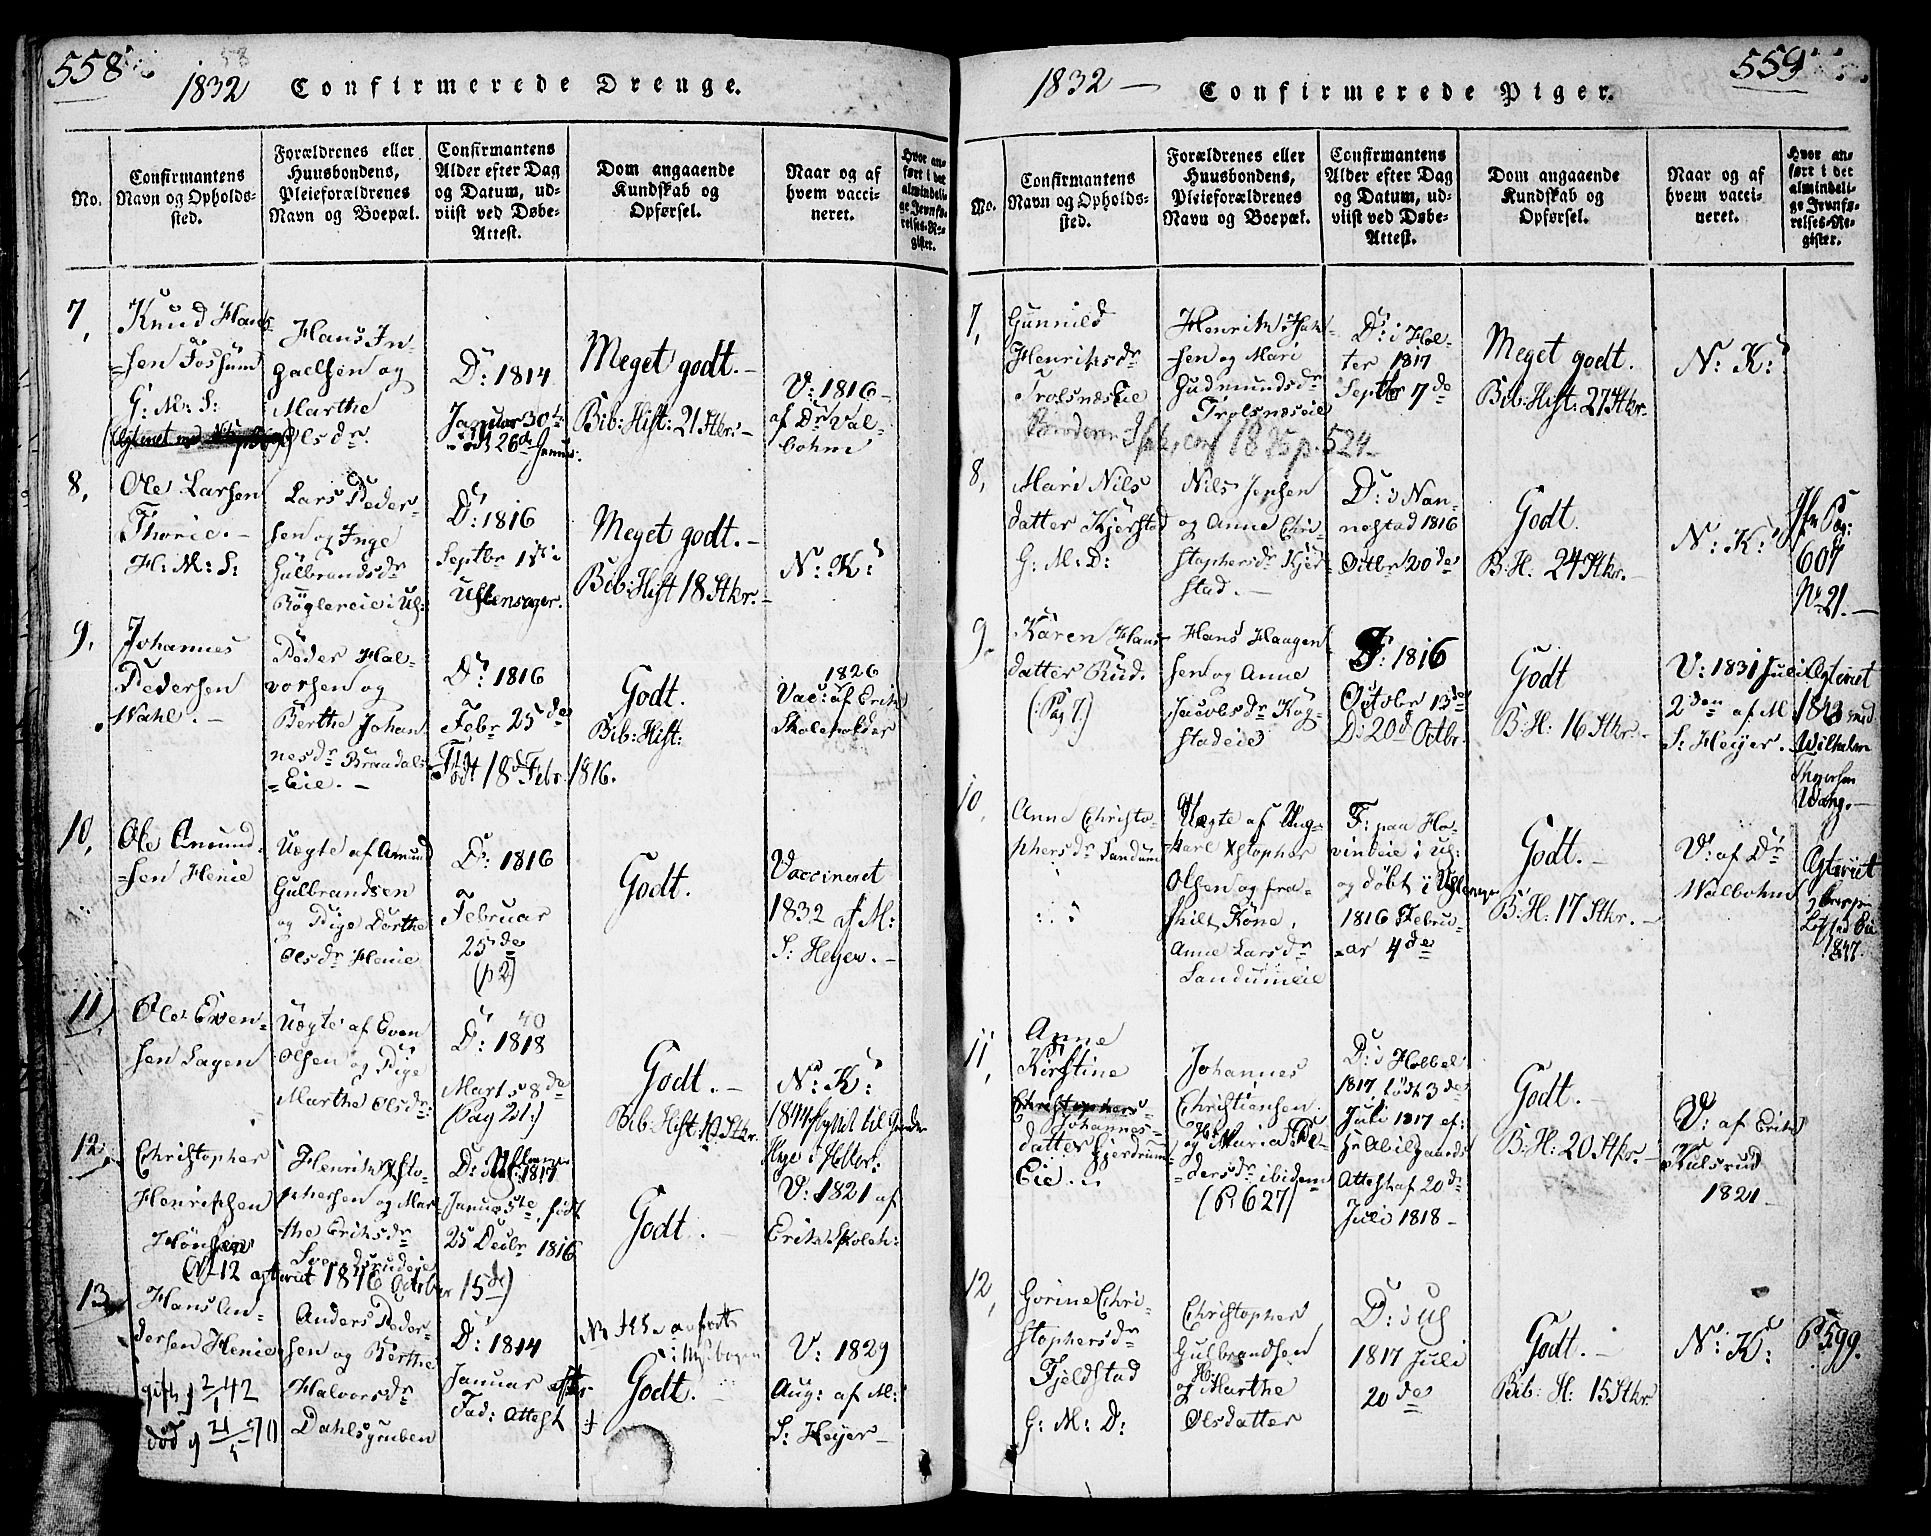 558
1832 Confirmerede Drenge.
No.
Confirmantens
Navn og Opholds-
sted.
Forældrenes eller
Huusbondens,
Pleieforældrenes
Navn og Boepæl.
Confirmantens
Alder efter Dag
og Datum, ud-
viist ved Døbe-
Attest.
Dom angaaende
Kundskab og
Opførsel.
Naar og af
hvem vacci-
neret.
Hvor an-
ført i det
almindeli-
ge Jevnfø-
relses-Re-
gister.
7,
Knud Han-
sen Fossum
G: M: S:
Hans In-
gaelsen og
Marthe
Olsdr.
D: 1814
Januar 30te
født 26d Januar
Meget godt.-
Bib: Hist: 21 Stkr:-
V: 1816-
af Dr Wal-
bohm
8,
Ole Larsen
Thorie.-
H: M: S:
Lars Peder-
sen og Inge
Gulbrandsdr
Røglereie i Ul-
D: 1816
Septbr 1ste
Ullensager.
Meget godt.-
Bib: Hist 18 Stkr.-
N: K:
9,
Johannes
Pedersen
Wahl.-
Peder Hal-
vorsen og
Berthe Johan
nesdr Braadal-
-Eie.-
D: 1816
Febr 25de
Født 18d Febr. 1816.
Godt.
Bib: Hist:
1826
Vac: af Erik
Skoleholder
10,
Ole Amund-
-sen Henie
Uægte af Amund
Gulbrandsen
og Pige Dorthe
Olsdr Henie
D: 1816
Februar
25de
(p 2)
Godt.
Vaccineret
1832 af M:
S: Heyer.-
11,
Ole Even-
sen Sagen
Uægte af Even
Olsen og Pige
Marthe Olsdr:
40
D: 1818
Marts 8de
(Pag 21:)
Godt.-
Bib: Hist 10 Stkr.
N: K:
12,
Christopher
Henriksen
Hønsen
Henrik Xsto-
phersen og Mar-
the Eriksdr
Sven
D: i Ullensager
1817
Januar 5te, født
25 Decbr 1816
Godt.-
V: 1821 af
Erik Skoleh:
(N 12 attesteret 1816 Octbr 15de)
13
Hans An-
dersen Henie
gift 2/1 42
død 21/5 70
Anders Peder-
sen og Berthe
Halvorsdr
Dahlsgruben
D: 1814
Januar
Fad: Attest
Godt.
V: 1829
Aug: af M:
S: Heyer-
559
1832- Confirmerede Piger.
No.
Confirmantens
Navn og Opholds-
sted.
Forældrenes eller
Huusbondens,
Pleieforældrenes
Navn og Boepæl.
Confirmantens
Alder efter Dag
og Datum, ud-
viist ved Døbe-
Attest.
Dom angaaende
Kundskab og
Opførsel.
Naar og af
hvem vacci-
neret.
Hvor an-
ført i det
almindeli-
ge Jevnfø-
relses-Re-
gister.
7,
Gunnild
Henriksdr
Trolsnæseie
Henrik Han-
sen og Mari
Gudmundsdr
Trolsnæseie
D: i Hol-
ter 1817
Septbr 7de
Meget godt.
Bib: Hist: 27 Stkr.
N: K:
1835 p. 524-
8,
Mari Nils
datter Kjerstad
G: M: D:
Nils Jensen
og Anne Chri-
stophersdr Kjer-
stad.-
D: i Nan-
nestad 1816
Octbr 20de
Godt.
B: H. 24 Stkr.-
N: K:
Pag:
607
No 21.-
9.
Karen Hans
datter Rud.
(: Pag 7.)
Hans Haagen
sen og Anne
Jacobsdr Kog-
stadeie
F: 1816
October 13de
D: 20d Octbr.
Godt
B: H: 16 Stkr.-
V: 1831 Juli
2den af M:
S: Heijer.
1843 med
Wilhelm
Wang.-
10,
Anne Christo-
phersdr Sandum
Uægte af Ung-
karl Xstopher
Olsen og fra-
skilt Kone,
Anne Larsdr
Sandumeie
F: paa Ho-
vindeie i Ul:
og døbt i Ullensager
1816 Febru-
ar 4de
Godt.-
B: H: 17 Stkr.-
V: af Dr
Walbohm
1847.
11,
Anne
Kirstine
Christophers-
Johannes-
datter Gjerdrum
Eie.-
Johannes
Christiensen
og Maria Pe-
dersdr ibidem
(P: 627)
D: i Hobbel
1817, født 3de
Juli 1817 ef:
Hr Abilgaards
Attest af 20de
Juli 1818-
Godt.-
B: H: 20 Stkr.-
V: af Erik
Kulsrud
1821-
12,
Gorine Chri-
stophersdr
Fjeldstad
G: M: D:
Christopher
Gulbrandsen
og Marthe
Olsdatter
D: i Ull
1817 Juli
20de
Godt.-
Bib: H: 15 Stkr.
N: K:
P 599.